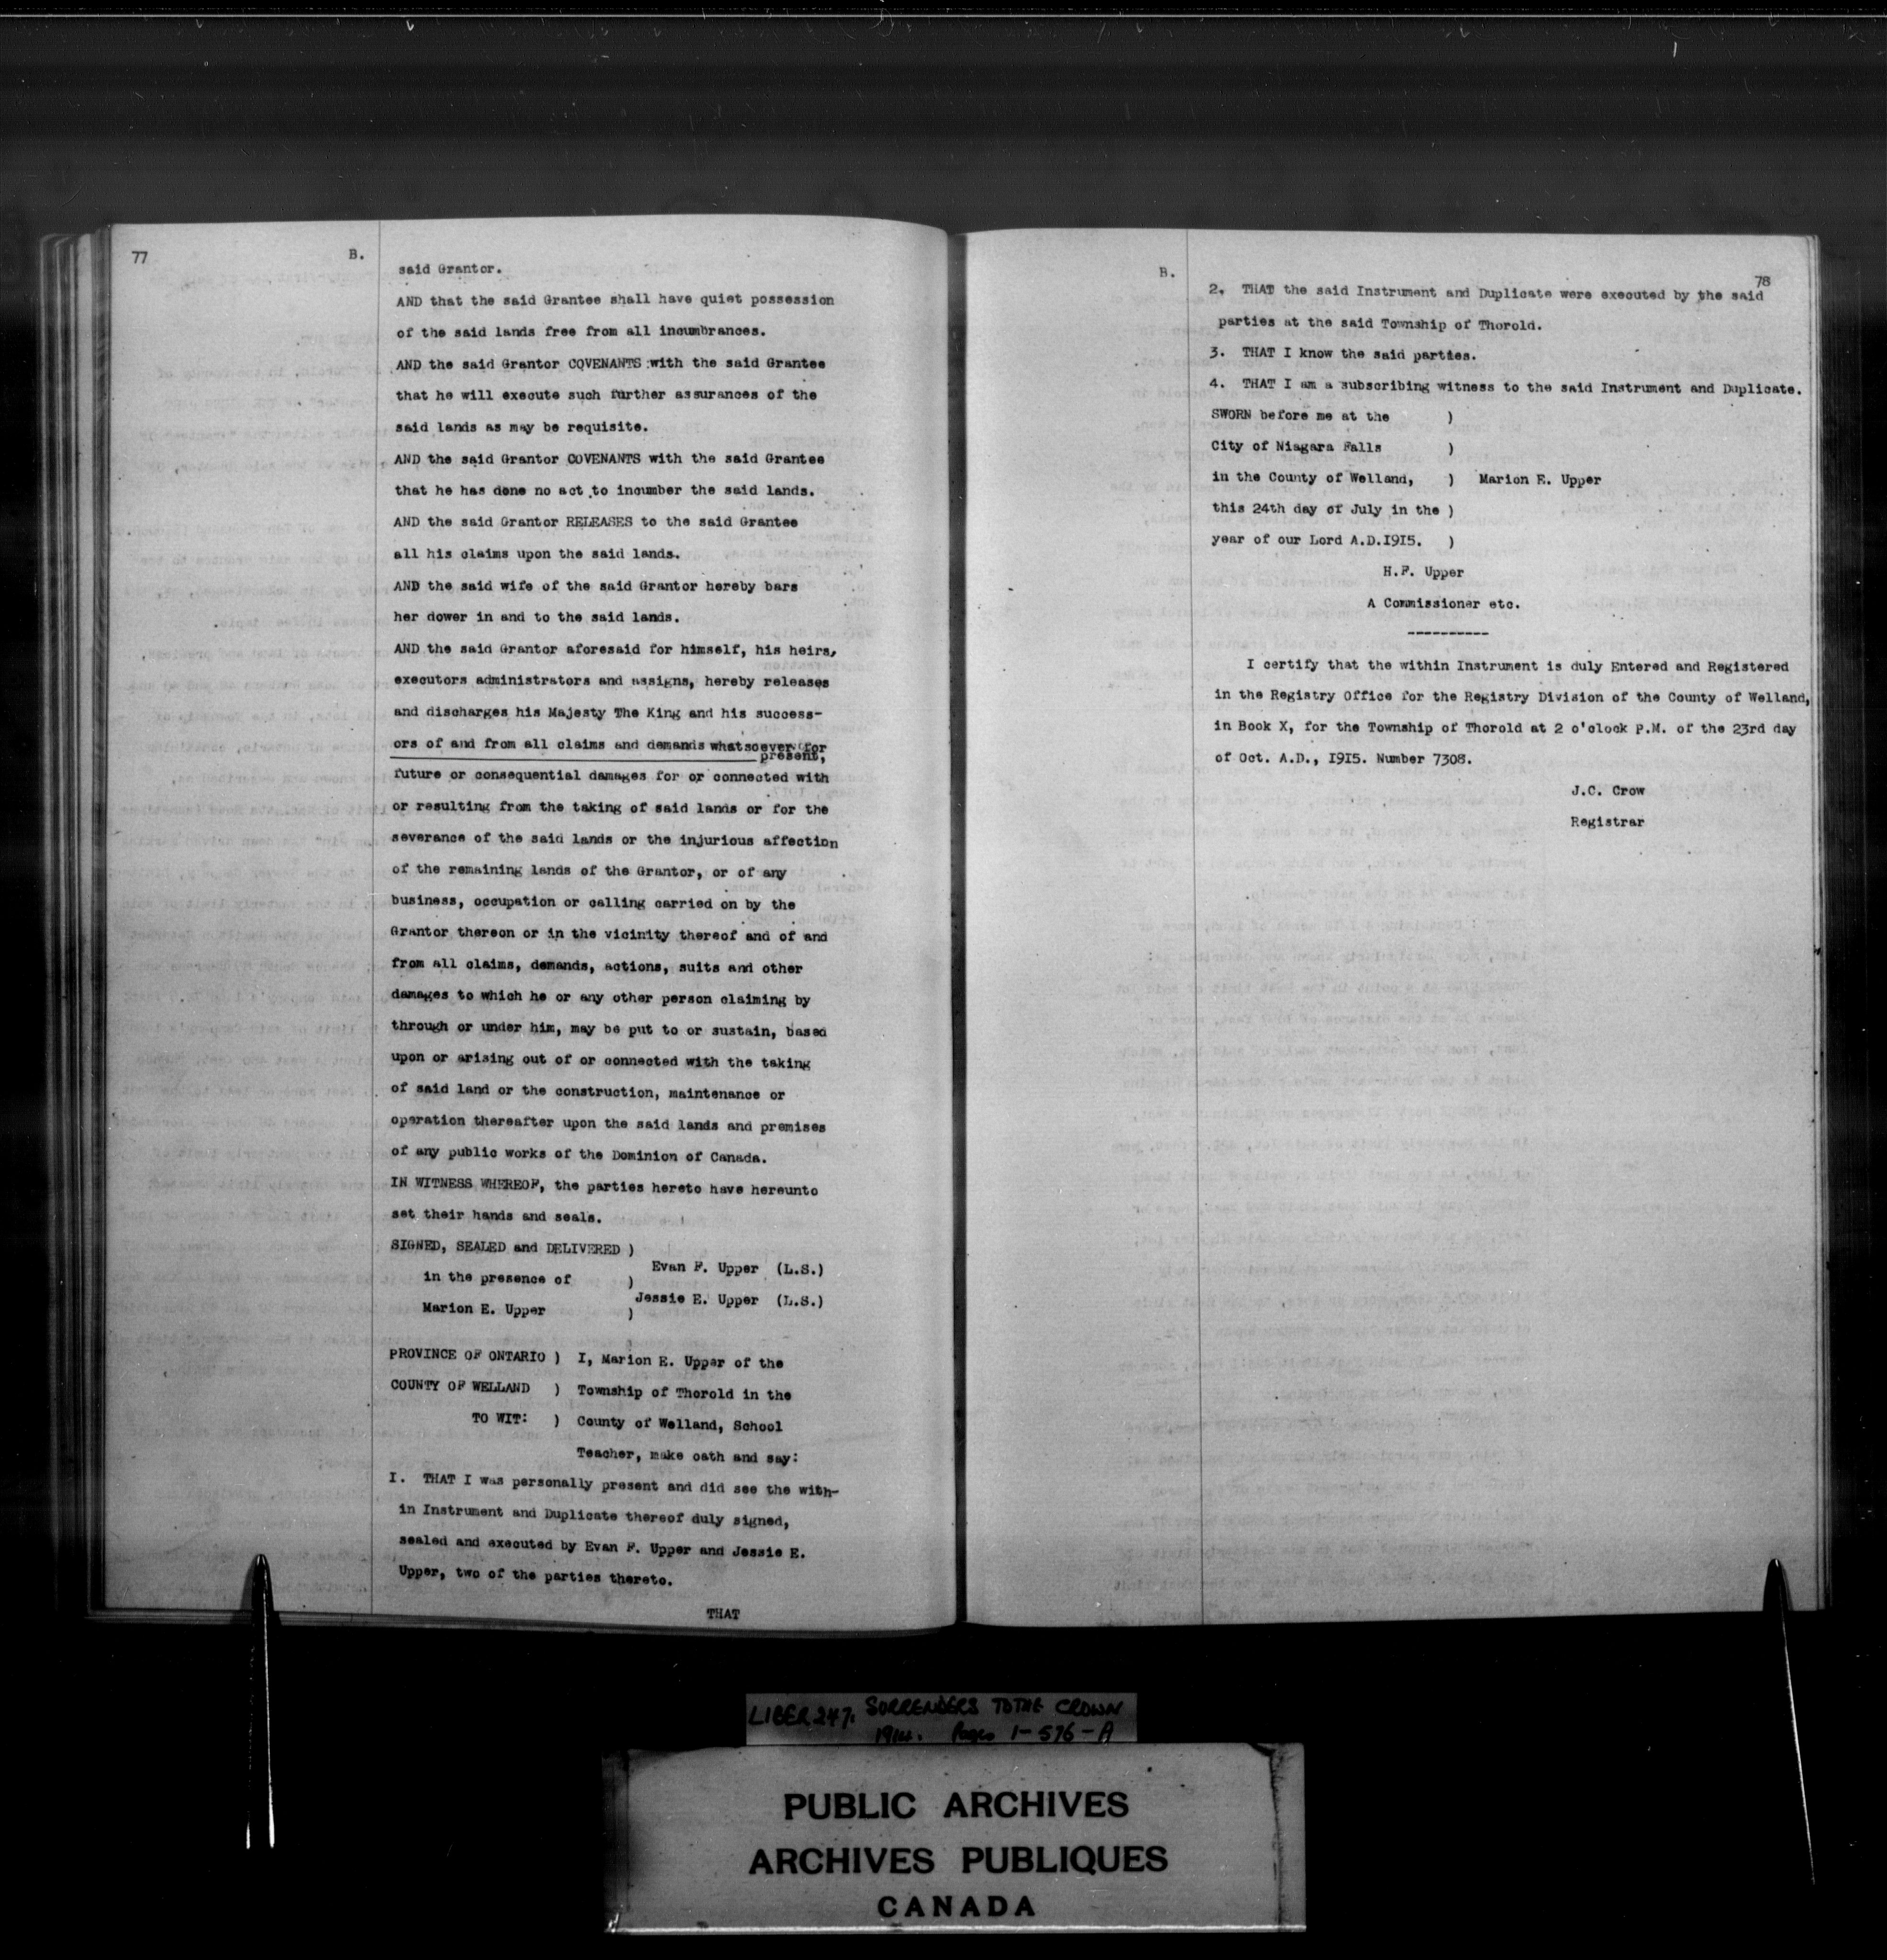 77
B.
said Grantor.
AND that the said Grantee shall have quiet possession
of the said lands free from all incumbrances.
AND the said Grantor COVENANTS with the said Grantee
that he will execute such further assurances of the
said lands as may be requisite.
AND the said Grantor COVENANTS with the said Grantee
that he has done no act to incumber the said lands.
AND the said Grantor RELEASES to the said Grantee
all his claims upon the said lands.
AND the said wife of the said Grantor hereby bars
her dower in and to the said lands.
AND the said Grantor aforesaid for himself, his heirs,
executors administrators and assigns, hereby releases
and discharges his Majesty The King and his success-
ors of and from all claims and demands whatsoever for
present,
future or consequential damages for or connected with
or resulting from the taking of said lands or for the
severance of the said lands or the injurious affection
of the remaining lands of the Grantor, or of any
business, occupation or calling carried on by the
Grantor thereon or in the vicinity thereof and of and
from all claims, demands, actions, suits and other
damages to which he or any other person claiming by
through or under him, may be put to or sustain, based
upon or arising out of or connected with the taking
of said land or the construction, maintenance or
operation thereafter upon the said lands and premises
of any public works of the Dominion of Canada.
IN WITNESS WHEREOF, the parties hereto have hereunto
set their hands and seals.
SIGNED, SEALED and DELIVERED )
Evan F. Upper (L.S.)
in the presence of )
Jessie E. Upper (L.S.)
Marion E. Upper )
PROVINCE OF ONTARIO ) I, Marion E. Upper of the
COUNTY OF WELLAND ) Township of Thorold in the
TO WIT: ) County of Welland, School
Teacher, make oath and say:
I. THAT I was personally present and did see the with-
in Instrument and Duplicate thereof duly signed,
sealed and executed by Evan F. Upper and Jessie E.
Upper, two of the parties thereto.
THAT
B.
78
2. THAT the said Instrument and Duplicate were executed by the said
parties at the said Township of Thorold.
3. THAT I know the said parties.
4. THAT I am a subscribing witness to the said Instrument and Duplicate.
SWORN before me at the )
City of Niagara Falls )
in the County of Welland, ) Marion E. Upper
this 24th day of July in the )
year of our Lord A.D.I9I5. )
H.F. Upper
A Commissioner etc.
----------
I certify that the within Instrument is duly Entered and Registered
in the Registry Office for the Registry Division of the County of Welland,
in Book X, for the Township of Thorold at 2 o'clock P.M. of the 23rd day
of Oct. A.D., I9I5. Number 7308.
J.C. Crow
Registrar
LIBER 247. SURRENDERS TO THE CROWN
1914. Pages 1-576-A
PUBLIC ARCHIVES
ARCHIVES PUBLIQUES
CANADA